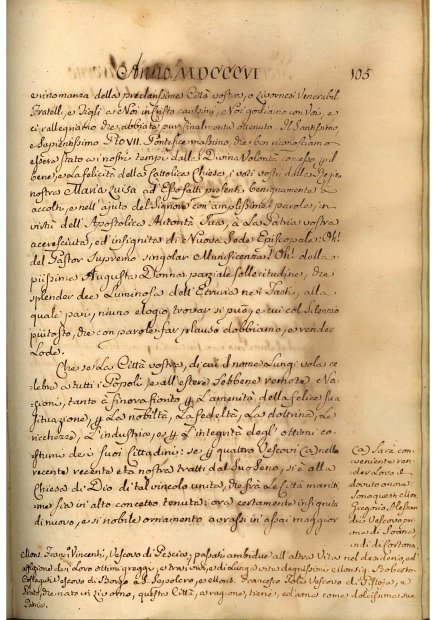 Anno MDCCCVI
105
e vinomanza della preclarissima Città vostra, o Livornesi Venerabil
Fratelli, e Figli a Noi in Cristo carissimi, Noi godiamo con Voi, e
ci rallegriamo che abbiate pur finalmente ottenuto. Il Santissimo,
e Sapientissimo PIO VII. Pontefice massimo, che ben riconosciamo
essere stato a i nostri tempi dalla Divina Volontà concesso, pel
bene, e la felicità della Cattolica Chiesa, i voti vostri dalla Regina
nostra MARIA LUISA ad Esso fatti presenti, benignamente ha
accolti, e nell'ajuto del Signore con amplissime parole, in
virtù dell'Apostolica Autorità Sua, à La Patria vostra
accresciuta, ed insignita di Nuova Sede Episcopale. Oh!
del Pastor Supremo singolar Munificenza! Oh! della
piissima Augusta Donna parziale sollecitudine, che
splender dee Luminosa dell'Etruria nei Fasti, alla
quale pari niuno elogio trovar si può, e cui col Silenzio
piuttosto, che con parole far plauso dobbiamo, e render
Lode.
Che se La Città vostra, di cui il nome Lungi vola ce
lebre a tutti i Popoli, e all'estere Sebbene remote Na
zioni, tanto à finora fiorito p. L'amenità della felice sua
situazione, p. La nobiltà, La fedeltà, La dottrina, Le
ricchezze, L'industria, e p. L'integrità degl'ottimi co
stumi de i suoi Cittadini: se p. quattro Vescovi (a) nella
recente recente età nostra tratti dal suo Seno, si è alla
Chiesa di Dio di tal vincolo unita, che frà Le Città maritti
me sia in alto concetto tenuta: ora certamente insignita
di nuovo, e sì nobile ornamento avrassi in assai maggior
(a) Sarà con
veniente ren
der Loro il
dovuto onore.
Sono questi Mons.
Gregorio Alessan
dri Vescovo pri
ma di Soana
poi di Cortona,
Mons. Franc.º Vincenti, Vescovo di Pescia; passati ambidue all'altra Vita nel desiderio, ed
affezione dei Loro ottimi greggi, e tra i vivi, e di Lunga vita degnissimi Monsig. Roberto
Costaguti Vescovo di Borgo S. Sepolcro, e Mons. Francesco Toli Vescovo di Pistoja, e
Prato, che nato in Livorno, questa Città, a ragione, tiene, ed ama come dolcissima sua
Patria.